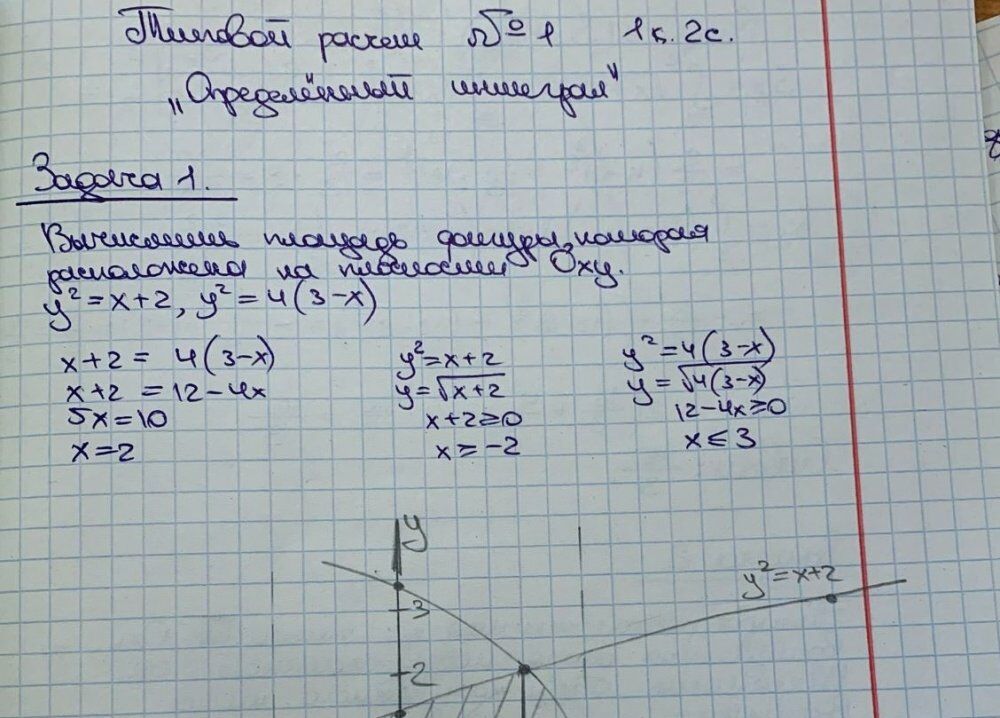 Типовой расчет №1 1к. 2с.
"Определённый интеграл"
Задача 1.
Вычислить площадь фигуры, которая
расположена на плоскости Oxy.
y²=x+2, y²=4(3-x)
x+2 = 4(3-x)
x+2 = 12-4x
5x=10
x=2
y²=x+2
y=√x+2
x+2≥0
x≥-2
y²=4(3-x)
y=√4(3-x)
12-4x≥0
x≤3
y
y²=x+2
3
2